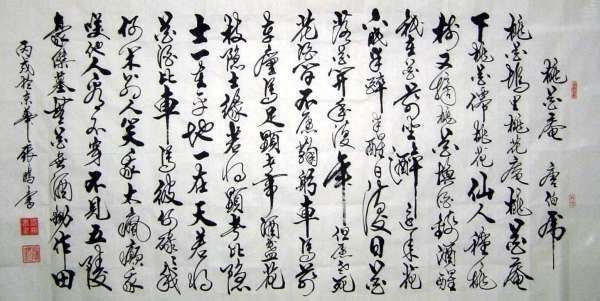 桃花庵 唐伯虎
桃花塢里桃花庵桃花庵
下桃花僊桃花仙人種桃
樹又摘桃花換酒錢酒醒
秪在花前坐酒醉還来花
下眠半醉半醒日復日花
落花開年復年但愿老死
花酒間不愿鞠躬車馬前
車塵馬足顯者事酒盞花
枝隱士緣若將顯者比隱
士一在平地一在天若將
花酒比車馬彼何碌碌我
何閑別人笑我太瘋癲我
笑他人看不穿不見五陵
豪傑墓無花無酒鋤作田
丙戌於京華張鵬書